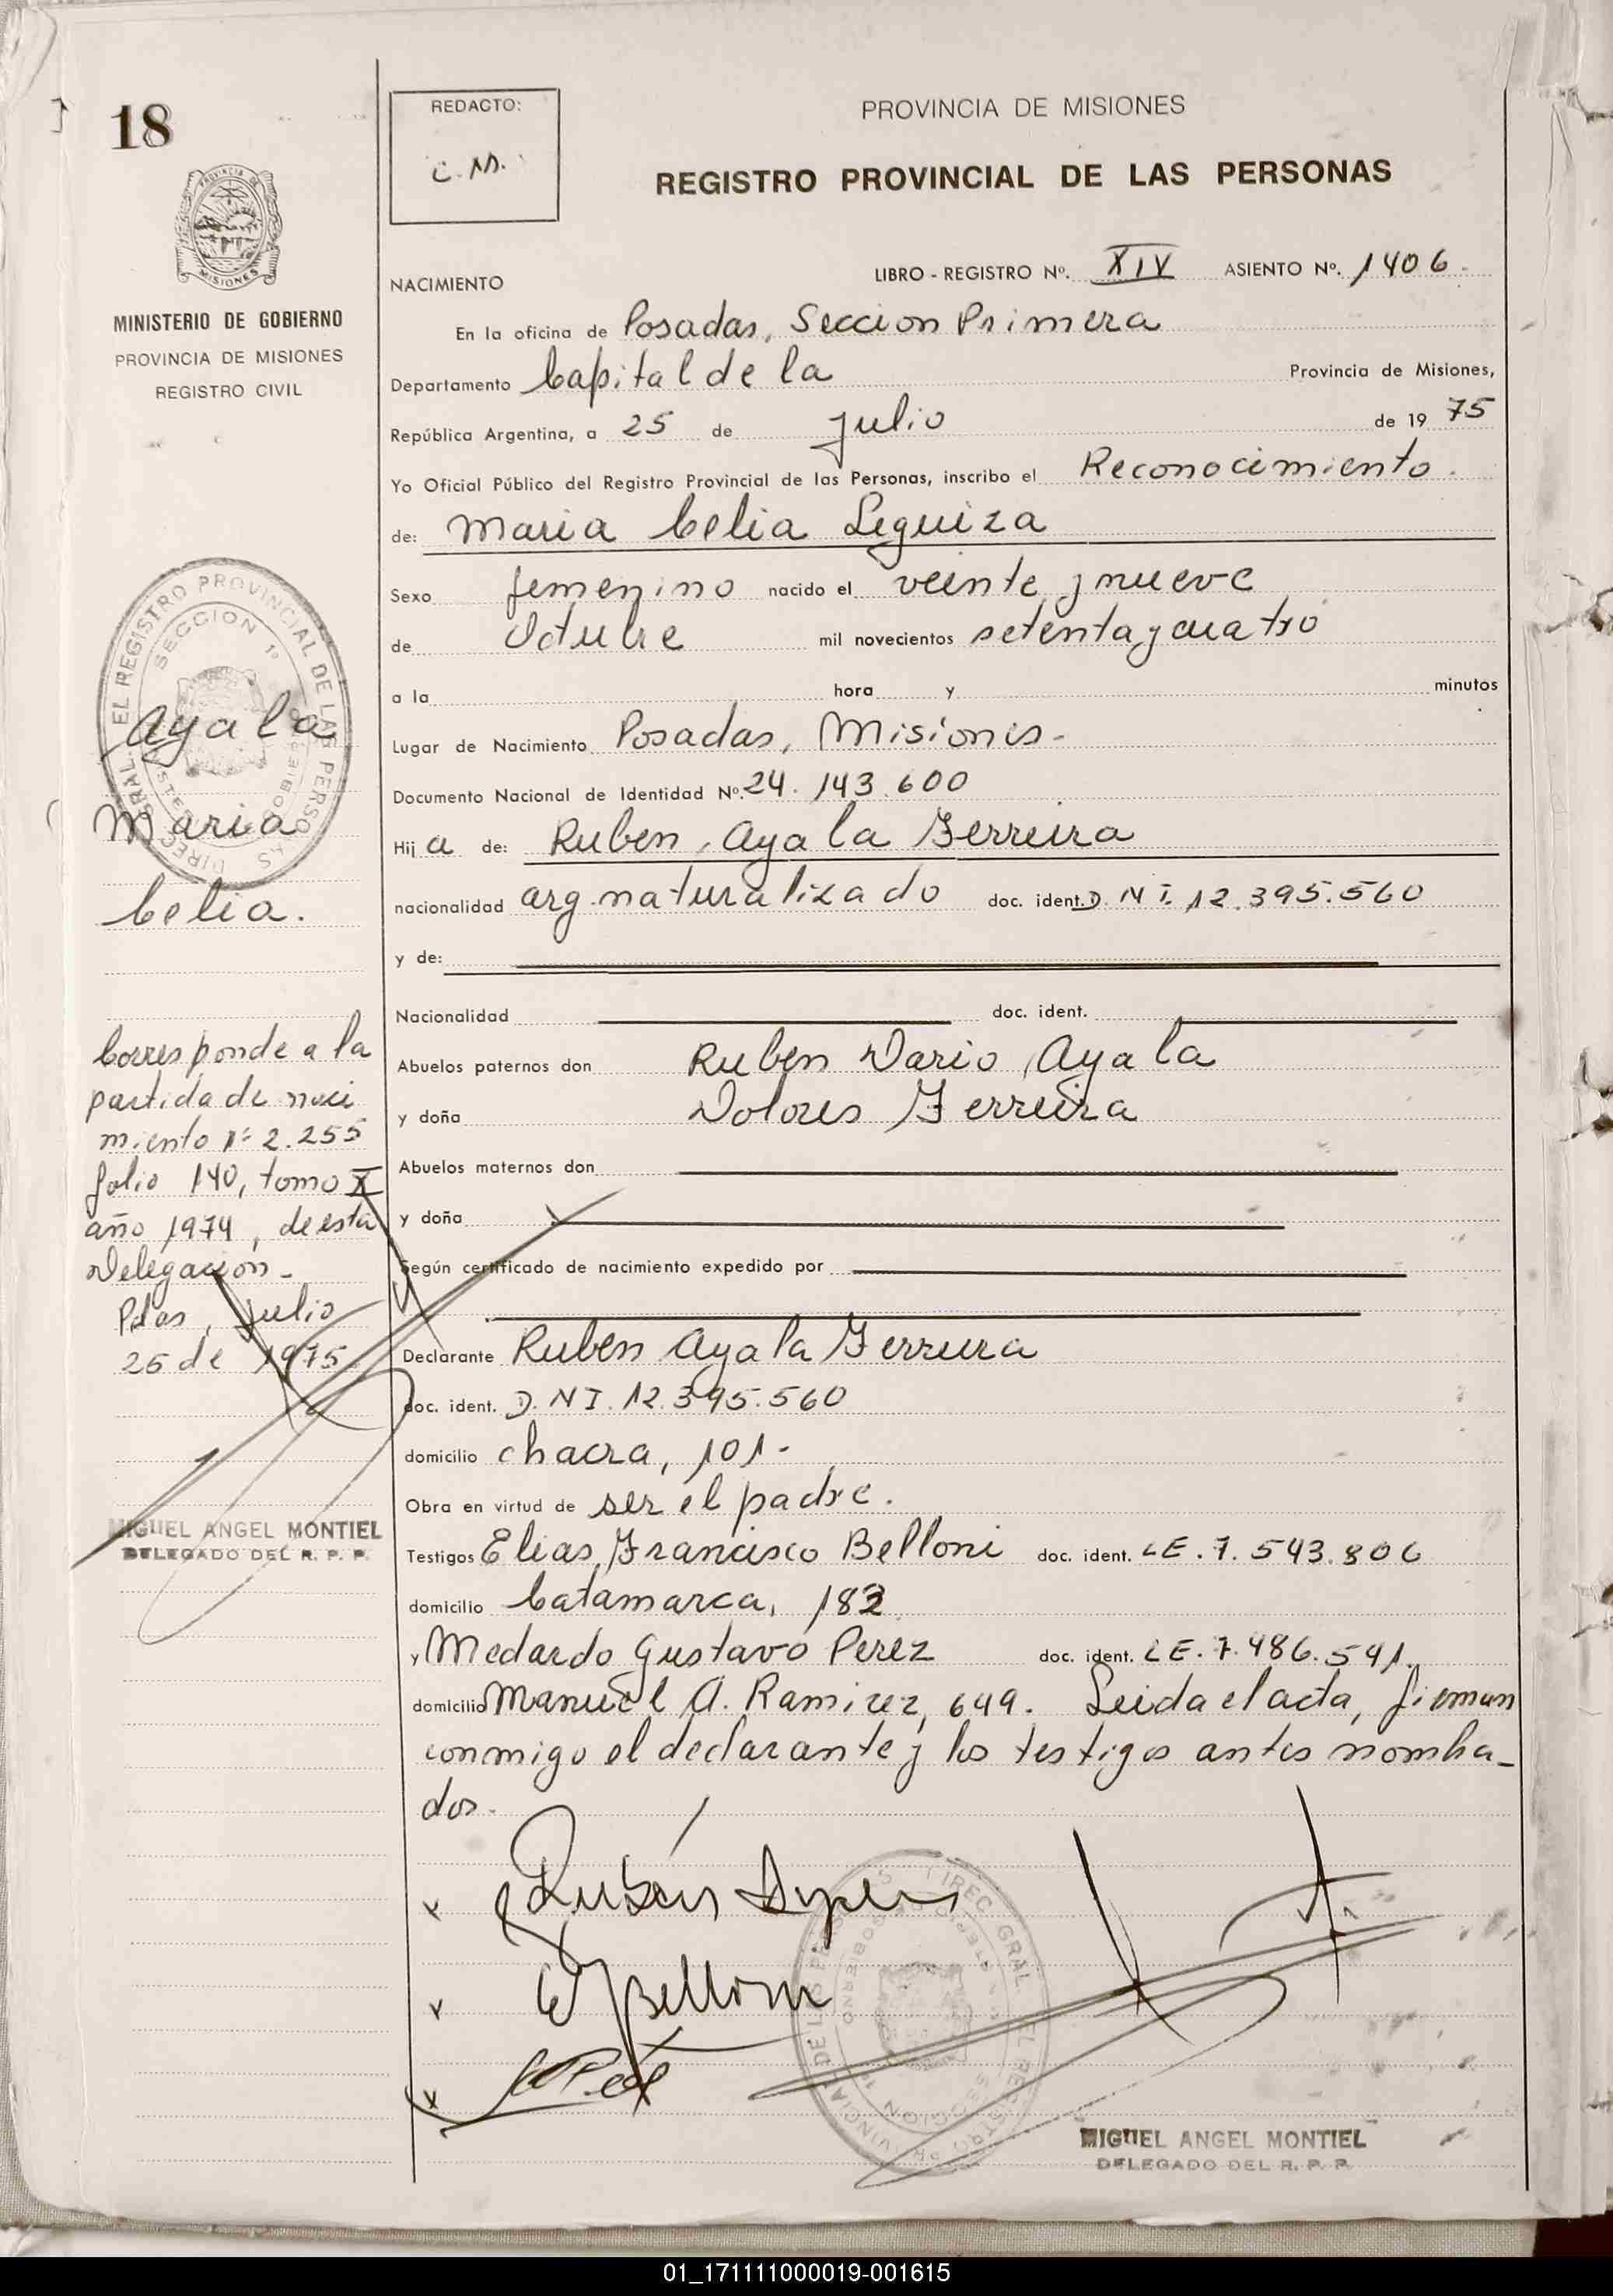 18
REDACTO:
C.M.
PROVINCIA DE MISIONES
REGISTRO PROVINCIAL DE LAS PERSONAS
MISIONES
MINISTERIO DE GOBIERNO
PROVINCIA DE MISIONES
REGISTRO CIVIL
NACIMIENTO
LIBRO - REGISTRO Nº. XIV ASIENTO Nº. 1406.
En la oficina de Posadas, Seccion Primera
Departamento Capital de la Provincia de Misiones,
República Argentina, a 25 de Julio de 19 75
Yo Oficial Público del Registro Provincial de las Personas, inscribo el Reconocimiento.
de: Maria Celia Leguiza
Sexo femenino nacido el veinte y nueve
de Octubre mil novecientos setenta y cuatro
a la hora y minutos
Lugar de Nacimiento Posadas, Misiones-
Documento Nacional de Identidad Nº. 24.143.600
Hij a de: Ruben Ayala Ferreira
nacionalidad arg. naturalizado doc. ident. D.N.I. 12.395.560
y de:
Nacionalidad doc. ident.
Abuelos paternos don Ruben Dario Ayala
y doña Dolores Ferreira
Abuelos maternos don
y doña
Según certificado de nacimiento expedido por
Declarante Ruben Ayala Ferreira
doc. ident. D.N.I. 12.395.560
domicilio chacra, 101-
Obra en virtud de ser el padre.
Testigos Elias Francisco Belloni doc. ident. LE. 7.543.806
domicilio Catamarca, 182
y Medardo Gustavo Perez doc. ident. LE. 7.486.541.
domicilio Manuel A. Ramirez, 649. Leida el acta, firman
conmigo el declarante y los testigos antes nombra-
dos.
Ayala
Maria
Celia.
Corresponde a la
partida de naci
miento Nº 2.255
folio 140, tomo X
año 1974, de esta
Delegación-
Pdas, Julio
25 de 1975.
MIGUEL ANGEL MONTIEL
DELEGADO DEL R. P. P.
SECCION 1º
MIGUEL ANGEL MONTIEL
DELEGADO DEL R. P. P.
01_171111000019-001615